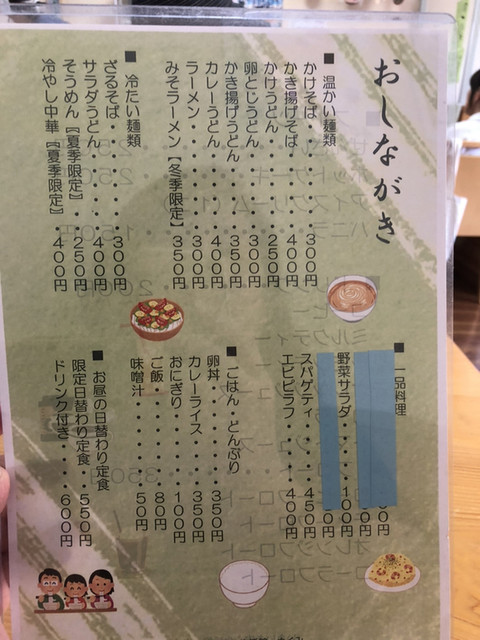 おしながき
■ 温かい麺類
かけそば・・・・・・300円
かき揚げそば・・・・400円
かけうどん・・・・・250円
卵とじうどん・・・・300円
かき揚げうどん・・・350円
カレーうどん・・・・400円
ラーメン・・・・・・300円
みそラーメン【冬季限定】350円
■ 冷たい麺類
ざるそば・・・・・・300円
サラダうどん・・・・400円
そうめん『夏季限定』・・250円
冷やし中華『夏季限定』・400円
■ 一品料理
野菜サラダ・・・・・100円
スパゲティ・・・・・450円
エビピラフ・・・・・400円
■ ごはん・どんぶり
卵丼・・・・・・・350円
カレーライス・・・350円
おにぎり・・・・・100円
ご飯・・・・・・・80円
味噌汁・・・・・・50円
■ お昼の日替わり定食
限定日替わり定食・・・550円
ドリンク付き・・・・600円